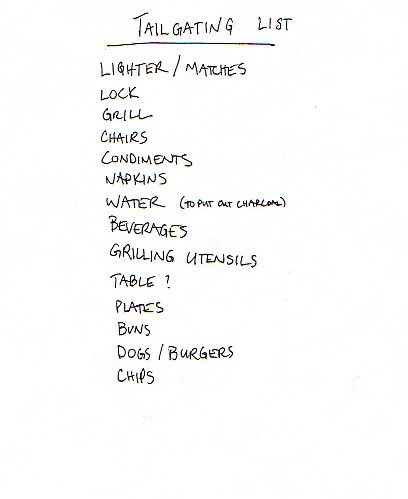 TAILGATING LIST
LIGHTER / MATCHES
LOCK
GRILL
CHAIRS
CONDIMENTS
NAPKINS
WATER (TO PUT OUT CHARCOAL)
BEVERAGES
GRILLING UTENSILS
TABLE ?
PLATES
BUNS
DOGS / BURGERS
CHIPS